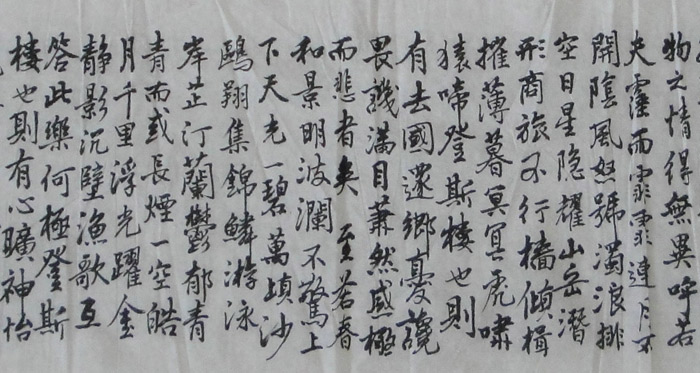 物之情得無異乎若
夫霪雨霏霏連月不
開陰風怒號濁浪排
空日星隐耀山岳潛
形商旅不行檣傾楫
摧薄暮冥冥虎嘯
猿啼登斯樓也則
有去國還鄉憂讒
畏譏滿目蕭然感極
而悲者矣至若春
和景明波瀾不驚上
下天光一碧萬頃沙
鷗翔集錦鱗游泳
岸芷汀蘭鬱郁青
青而或長煙一空皓
月千里浮光躍金
靜影沉璧漁歌互
答此樂何極登斯
樓也則有心曠神怡